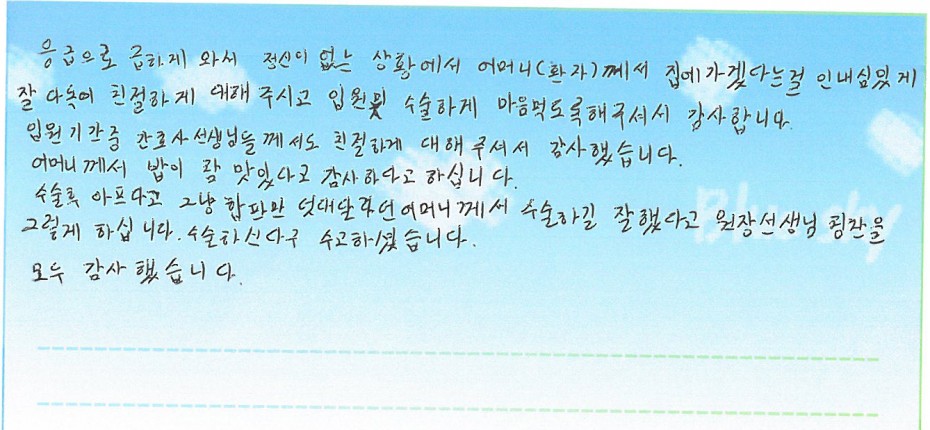 응급으로 급하게 와서 정신이 없는 상황에서 어머니(환자)께서 집에가겠다는걸 인내심있게
잘 다독여 친절하게 대해 주시고 입원및 수술하게 마음먹도록해주셔서 감사합니다.
입원기간중 간호사선생님들께서도 친절하게 대해 주셔서 감사했습니다.
어머니께서 밥이 참 맛있다고 감사하다고 하십니다.
수술후 아프다고 그냥 합판만 덧대달라던어머니께서 수술하길 잘했다고 원장선생님 칭찬을
그렇게 하십니다. 수술하신다구 수고하셨습니다.
모두 감사했습니다.
Blue sky